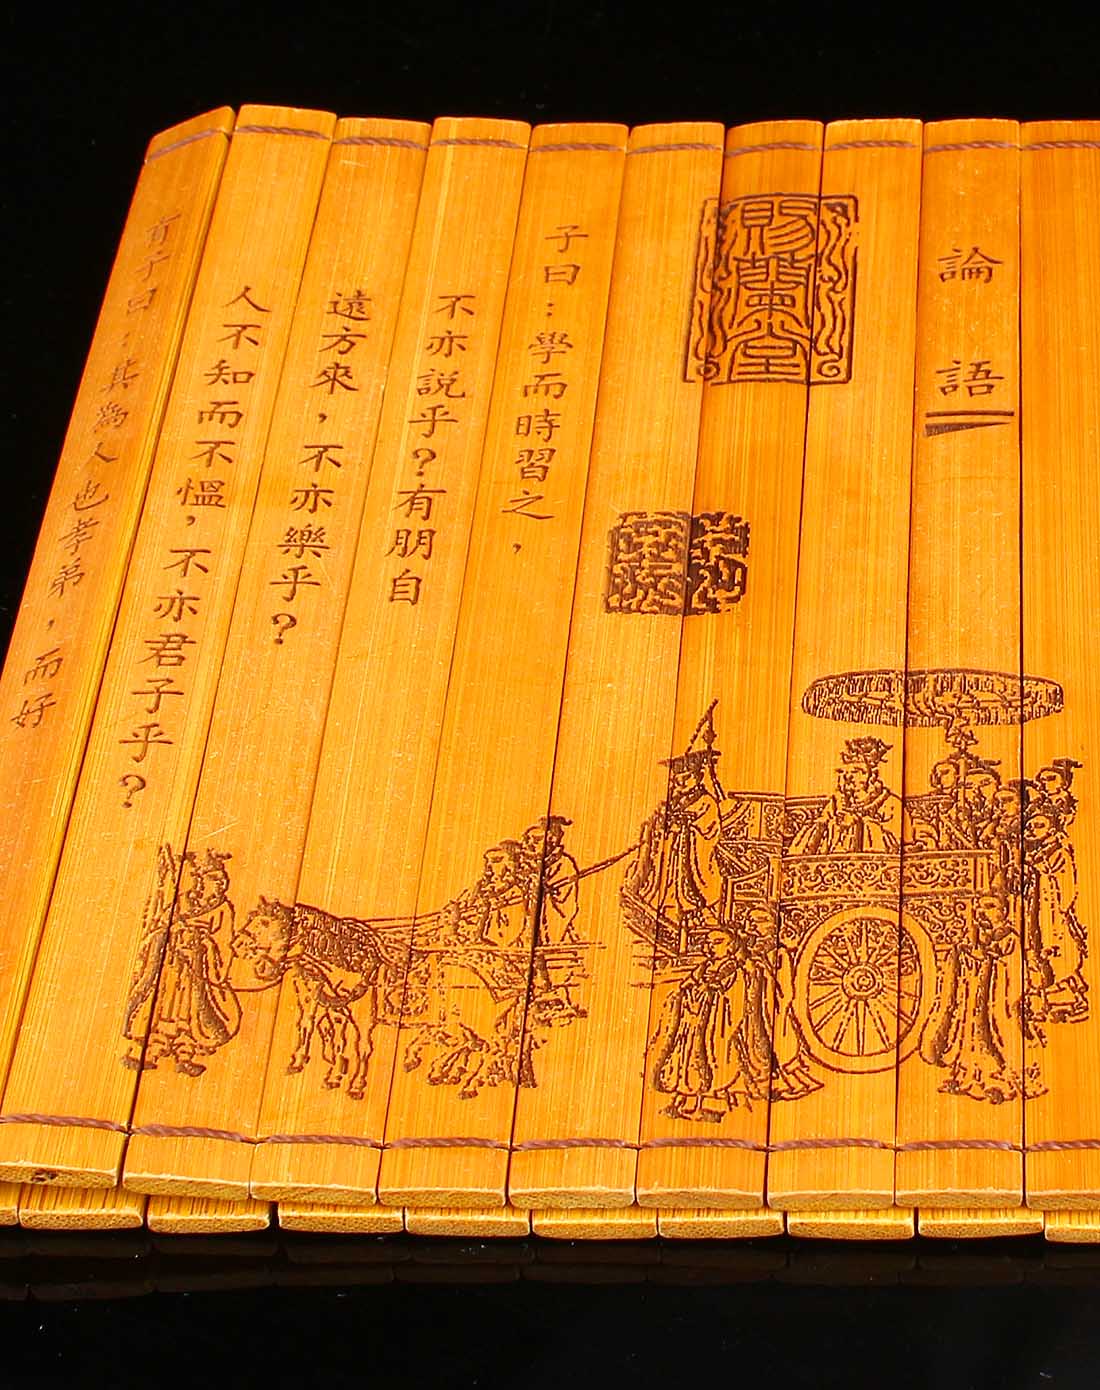 論語
子曰：學而時習之，
不亦説乎？有朋自
遠方來，不亦樂乎？
人不知而不愠，不亦君子乎？
有子曰：其爲人也孝弟，而好